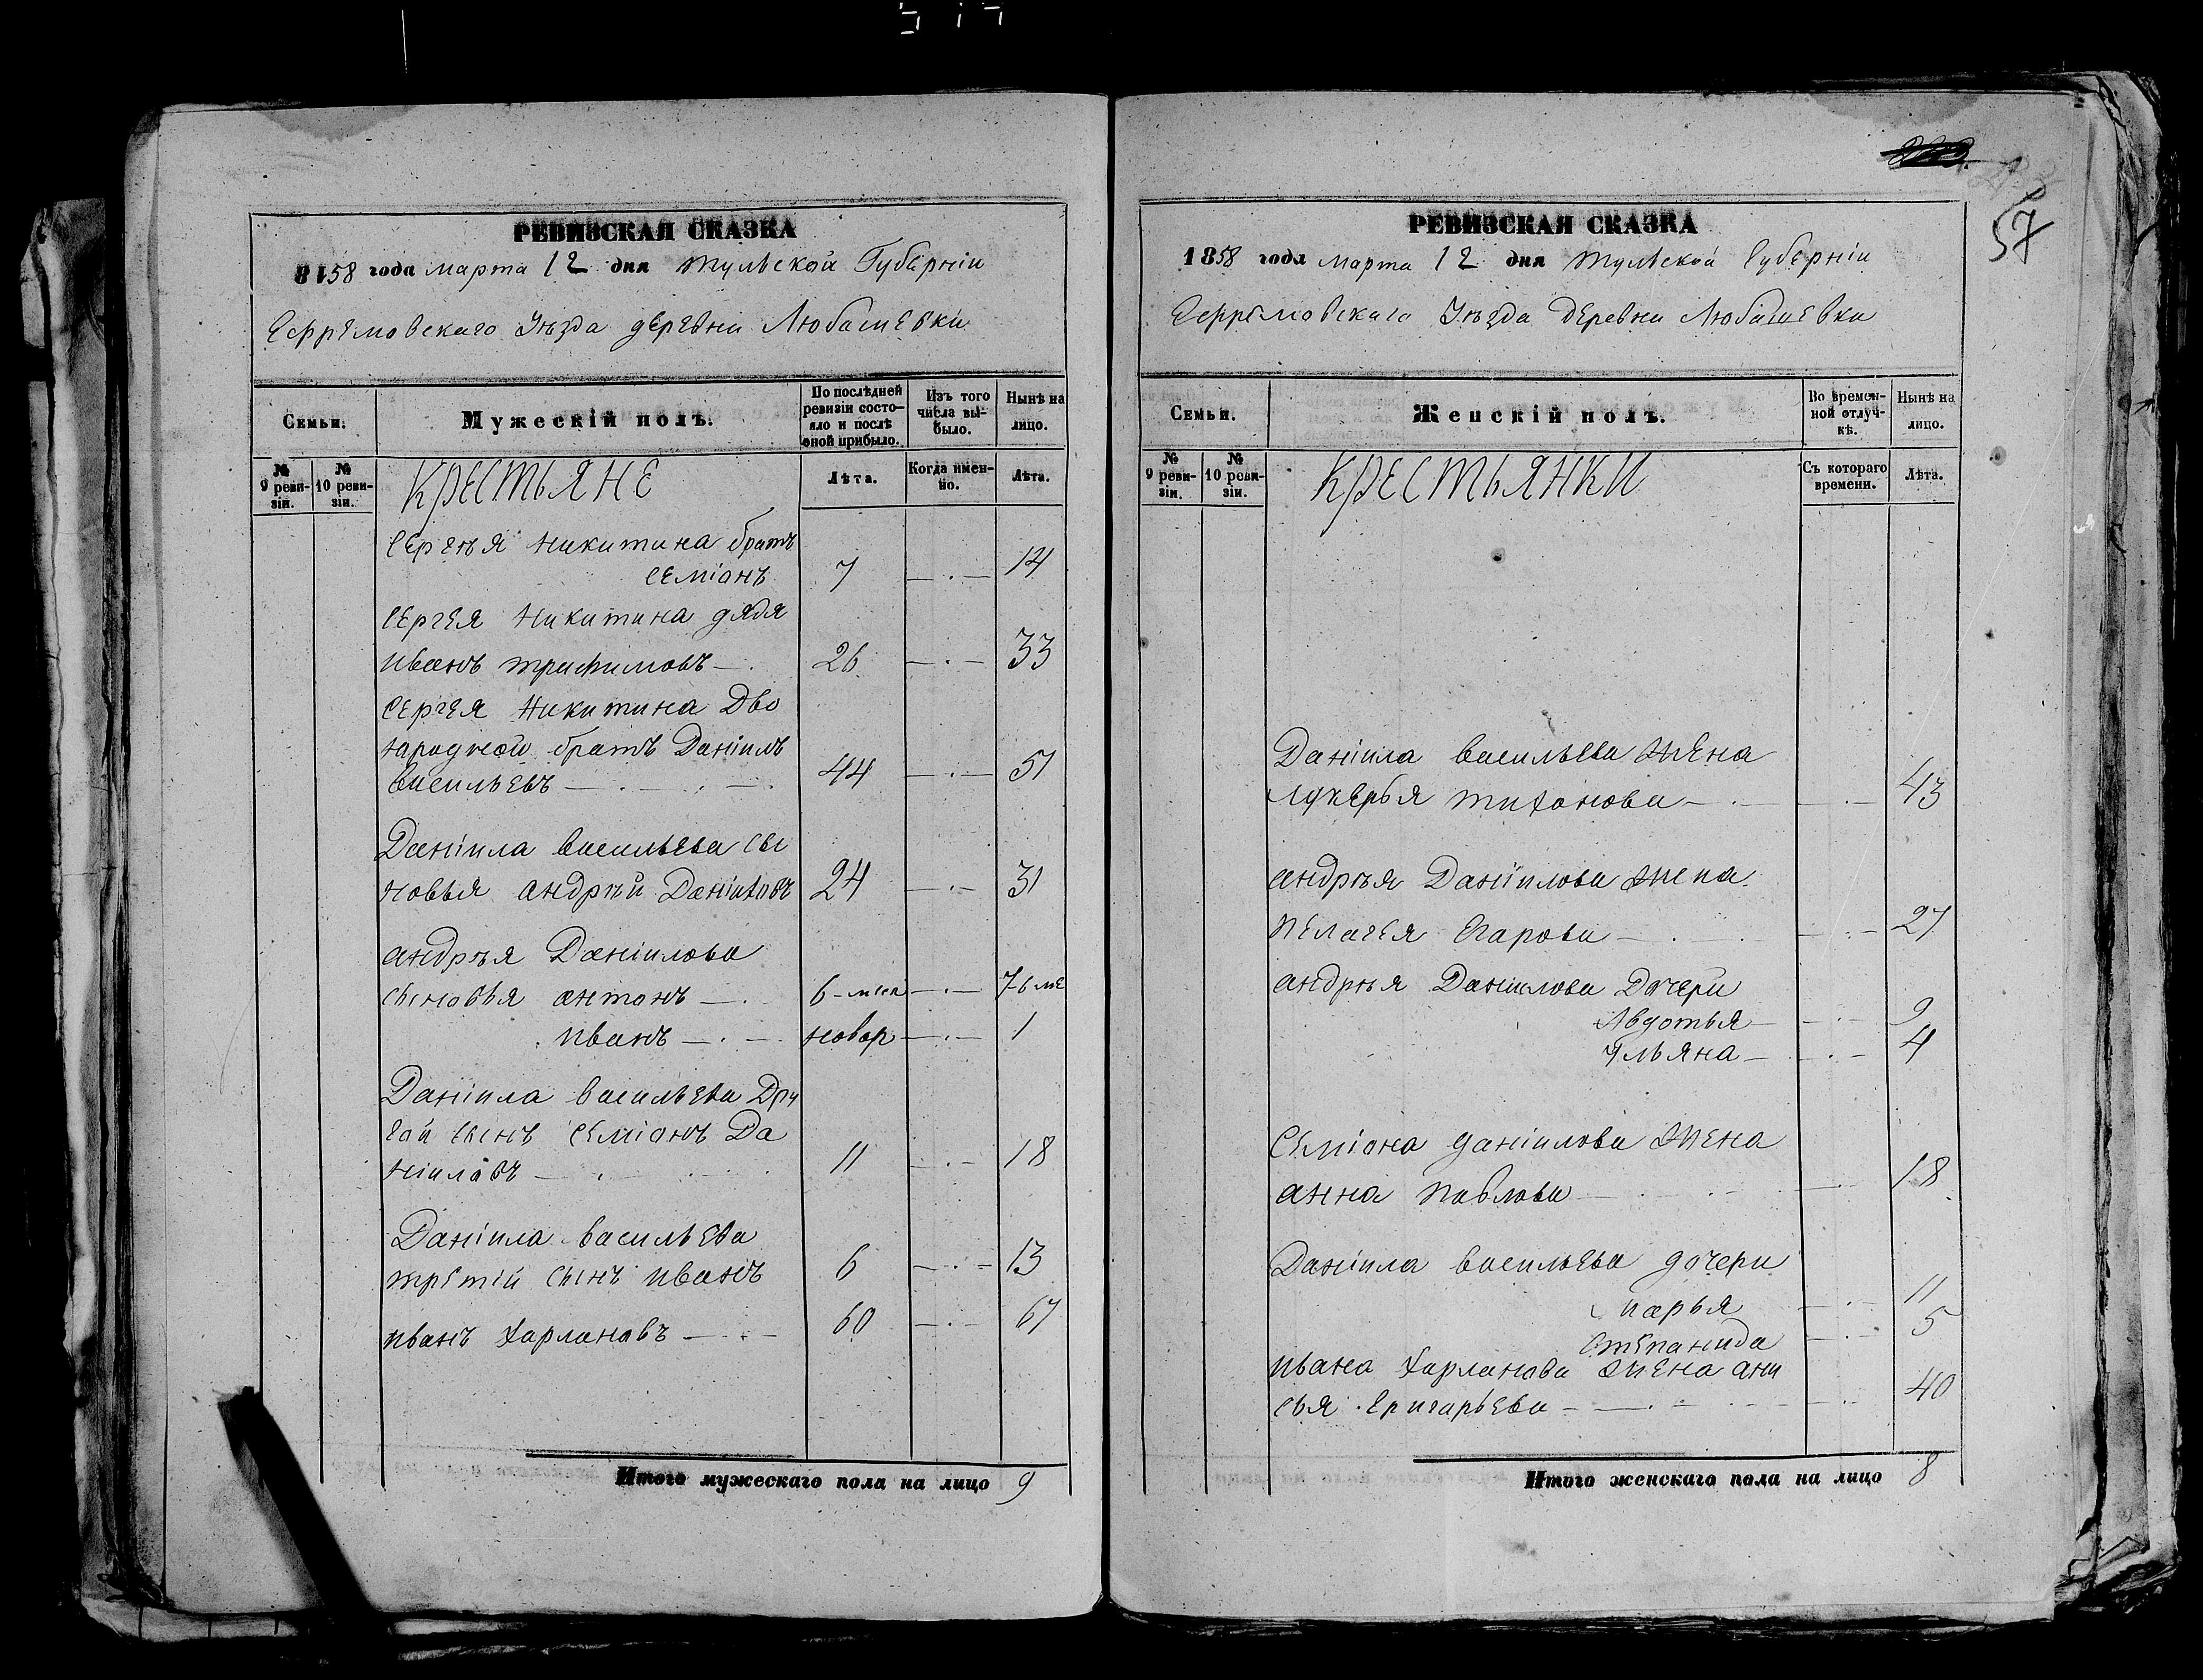 РЕВИЗСКАЯ СКАЗКА
8158 года марта 12 дня Тульской Губерніи
Ефремовскаго Уѣзда деревни Любашевки
Семьи.
Мужескій полъ.
По послѣдней ревизіи состояло и послѣ оной прибыло.
Изъ того числа выбыло.
Нынѣ на лицо.
№ 9 ревизіи.
№ 10 ревизіи.
КРЕСТЬЯНЕ
Лѣта.
Когда именно.
Лѣта.
Сергѣя Никитина братъ
Семіонъ 7 —·— 14
Сергея Никитина дядя
иванъ трифимовъ — 26 —·— 33
Сергея Никитина Дво
народной братъ Даніилъ
васильевъ — 44 —·— 51
Даніила васильева сы
новья андрѣй Даніиловъ 24 —·— 31
андрѣя Даніилова
сыновья антонъ — 6-мес —·— 7 6 ме
иванъ — новор —·— 1
Даніила васильева Дру
гой сынъ Семіонъ Да
ніиловъ — 11 —·— 18
Даніила васильева
третій сынъ иванъ 6 —·— 13
иванъ харлановъ — 60 —·— 67
Итого мужескаго пола на лицо 9
57
РЕВИЗСКАЯ СКАЗКА
1858 года марта 12 дня Тульской Губерніи
Ефремовскаго Уѣзда деревни Любашевки
Семьи.
Женскій полъ.
Во временной отлучкѣ.
Нынѣ на лицо.
№ 9 ревизіи.
№ 10 ревизіи.
КРЕСТЬЯНКИ
Съ котораго времени.
Лѣта.
Даніила васильева жена
лукерья тихонова — 43
андрѣя Даніилова жена
пелагея Егарова — 27
андрѣя Даніилова Дочери
Авдотья — 9
Ульяна — 4
Семіона даніилова жена
анна павлова — 18
Даніила васильева дочери
марья 11
Степанида 5
ивана харланова жена ани
сья Григарьева — 40
Итого женскаго пола на лицо 8